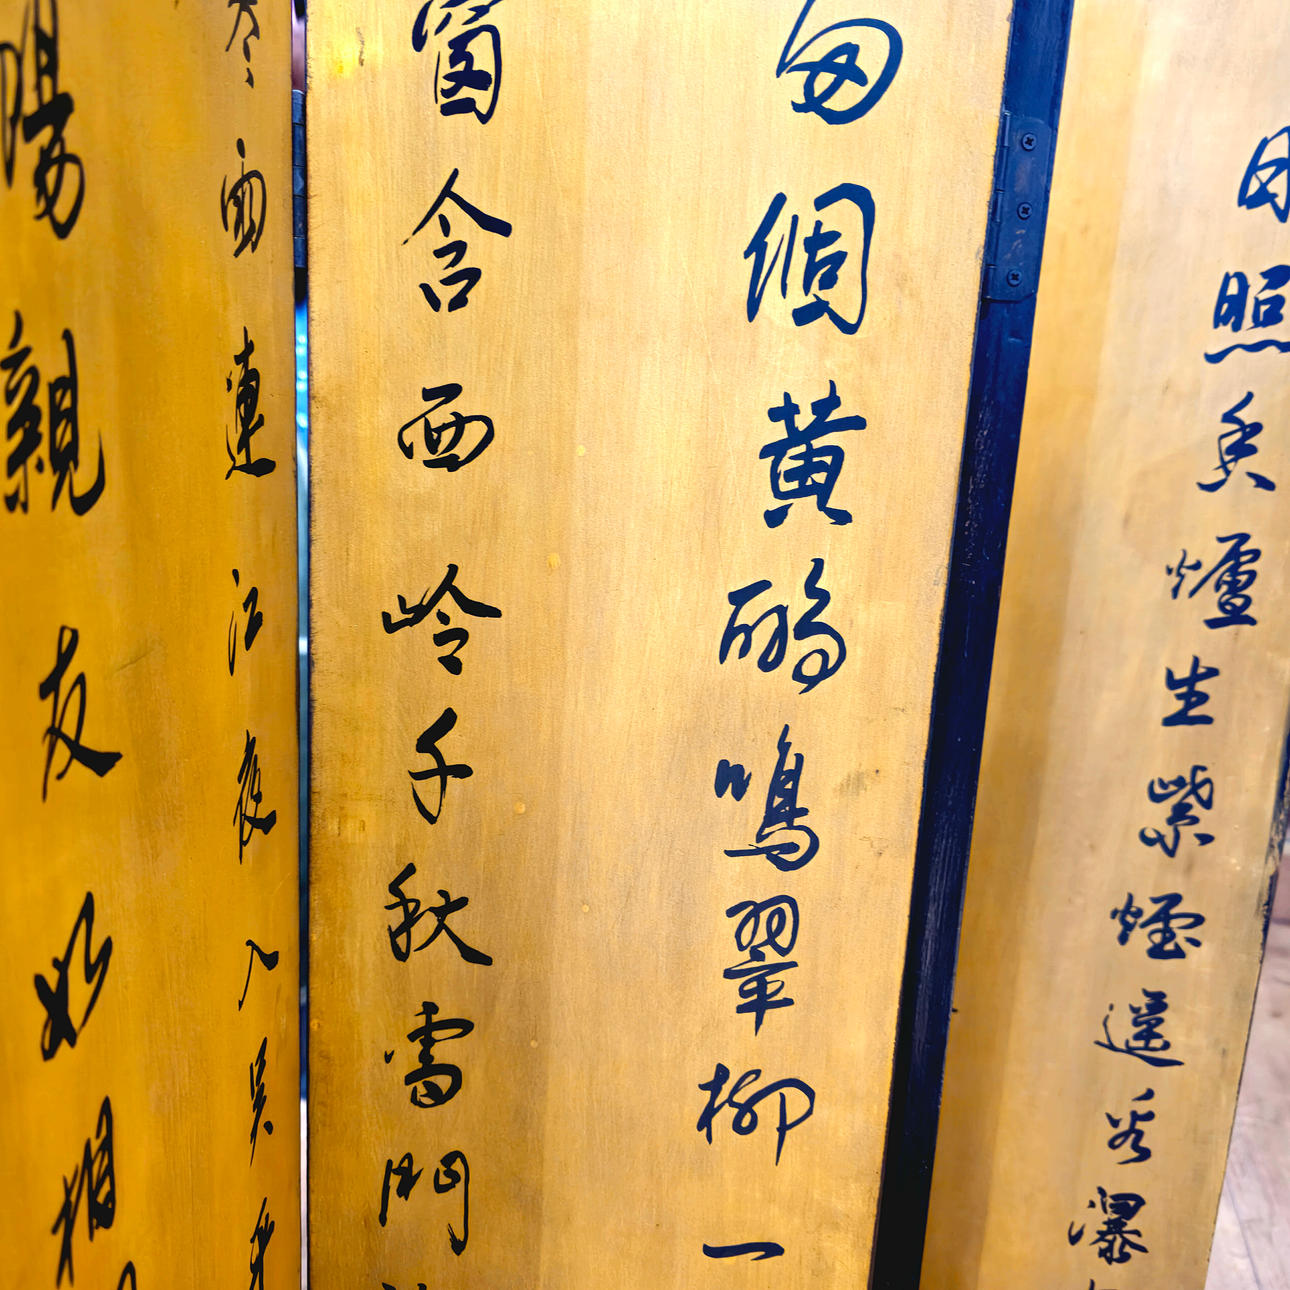 日照香爐生紫煙遥看瀑
兩個黃鸝鳴翠柳一
窗含西岭千秋雪門
寒雨連江夜入吳平
陽親友如相